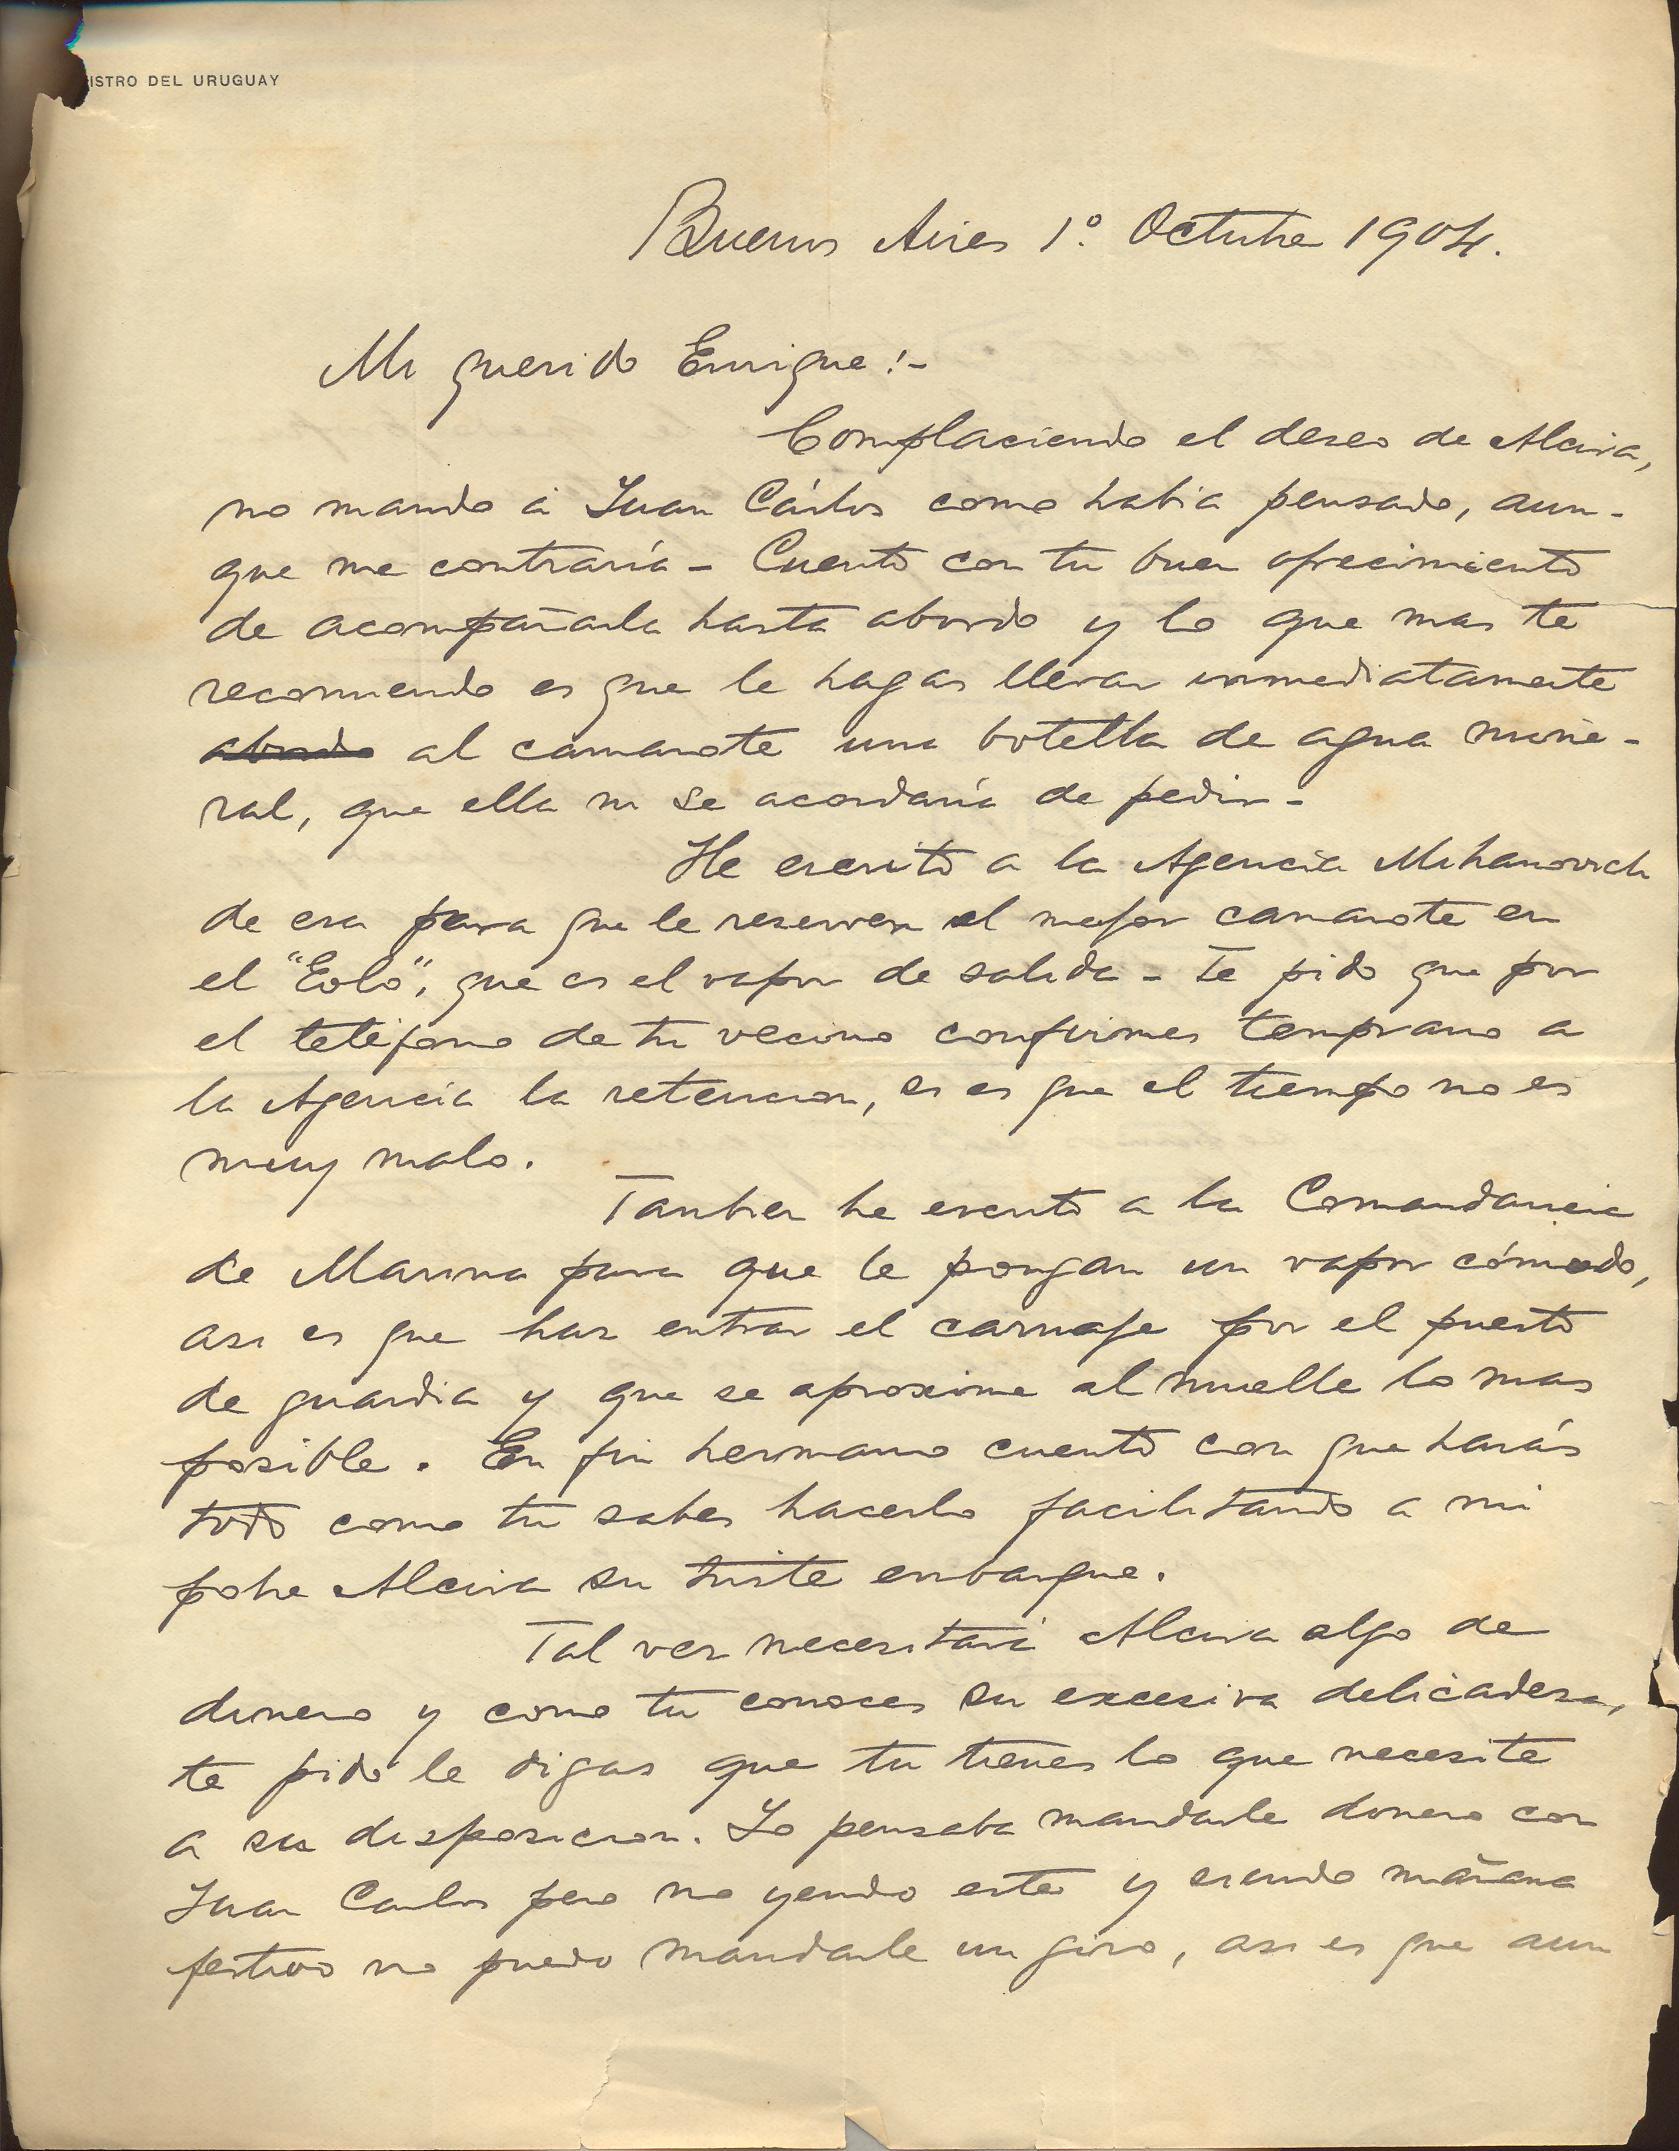 ISTRO DEL URUGUAY
Buenos Aires 1º Octubre 1904.
Mi querido Enrique:-
Complaciendo el deseo de Alcira,
no mando á Juan Cárlos como habia pensado, aun-
que me contraría - Cuento con tu buen ofrecimiento
de acompañarla hasta abordo y lo que mas te
recomiendo es que le hagas llevar inmediatamente
abordo al camarote una botella de agua mine-
ral, que ella ni se acordaría de pedir -
He escrito a la Agencia Mihanovich
de esa para que le reserven el mejor camarote en
el "Eolo", que es el vapor de salida - Te pido que por
el teléfono de tu vecino confirmes temprano a
la Agencia la retencion, si es que el tiempo no es
muy malo.
Tambien he escrito a la Comandancia
de Marina para que le pongan un vapor cómodo,
asi es que haz entrar el carruaje por el puesto
de guardia y que se aproxime al muelle lo mas
posible. En fin hermano cuento con que harás
todo como tu sabes hacerlo facilitando a mi
pobre Alcira su triste embarque.
Tal vez necesitará Alcira algo de
dinero y como tu conoces su excesiva delicadeza,
te pido le digas que tu tienes lo que necesite
a su disposicion. Yo pensaba mandarle dinero con
Juan Carlos pero no yendo este y siendo mañana
festivo no puedo mandarle un giro, asi es que aun